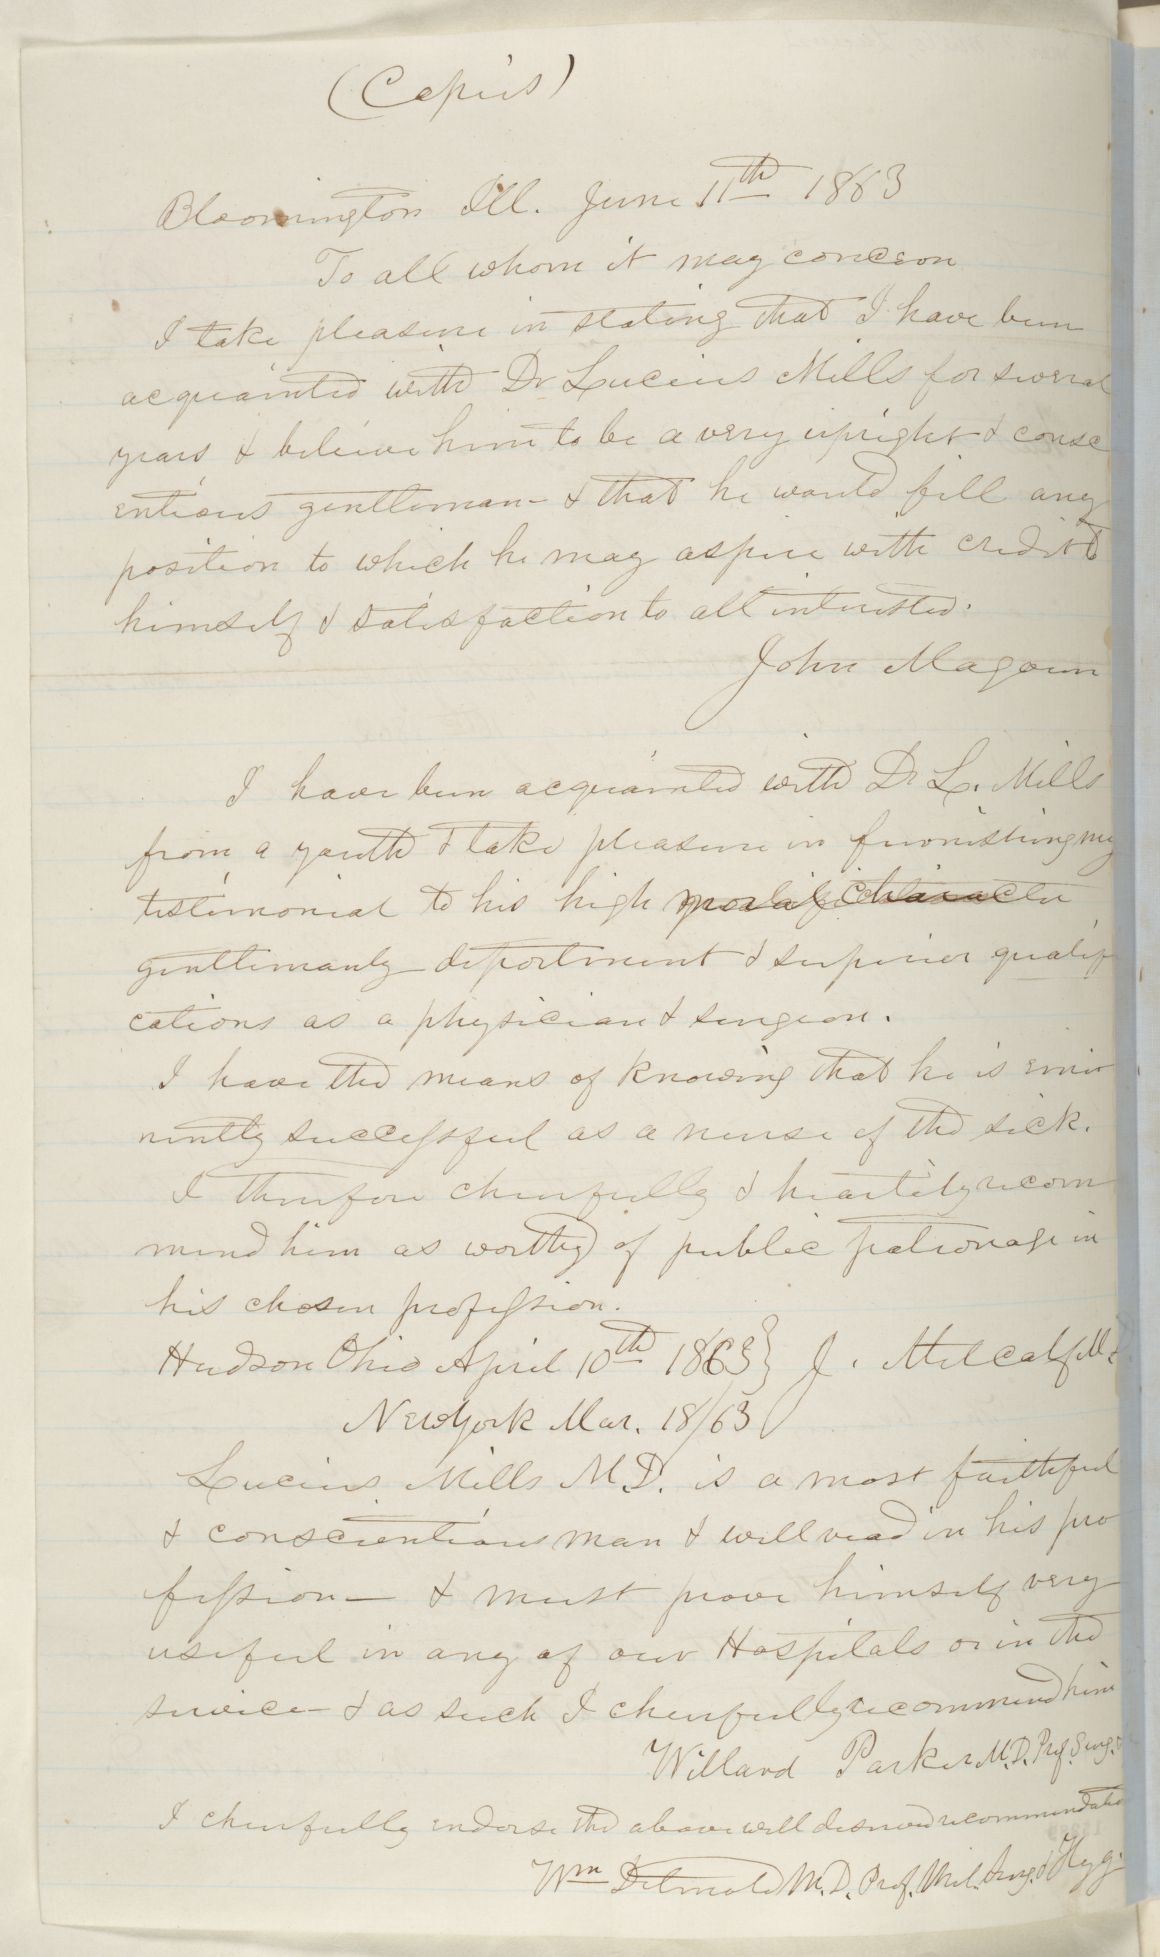 (Copies)
Bloomington Ill. June 11th 1863
To all whom it may concern
I take pleasure in stating that I have been
acquainted with Dr Lucius Mills for several
years & believe him to be a very upright & consc
entious gentleman - & that he would fill any
position to which he may aspire with credit t
himself & satisfaction to all interested.
John Magoun
I have been acquainted with Dr L. Mills
from a youth & take pleasure in furnishing my
testimonial to his high moral character
gentlemanly deportment & superior qualif
cations as a physician & surgeon.
I have the means of knowing that he is emi
nently successful as a nurse of the sick.
I therefore cheerfully & heartily recom
mend him as worthy of public patronage in
his chosen profession.
Hudson Ohio April 10th 1863} J. Metcalf M.
New York Mar. 18/63
Lucius Mills M.D. is a most faithful
& conscientious man & well read in his pro
fession - & must prove himself very
useful in any of our Hospitals or in the
service - & as such I cheerfully recommend him
Willard Parker M.D. Prof. Surg.
I cheerfully endorse the above well deserved recommendatio
Wm Detmold M.D. Prof. Mil. Surg. & Hyg.